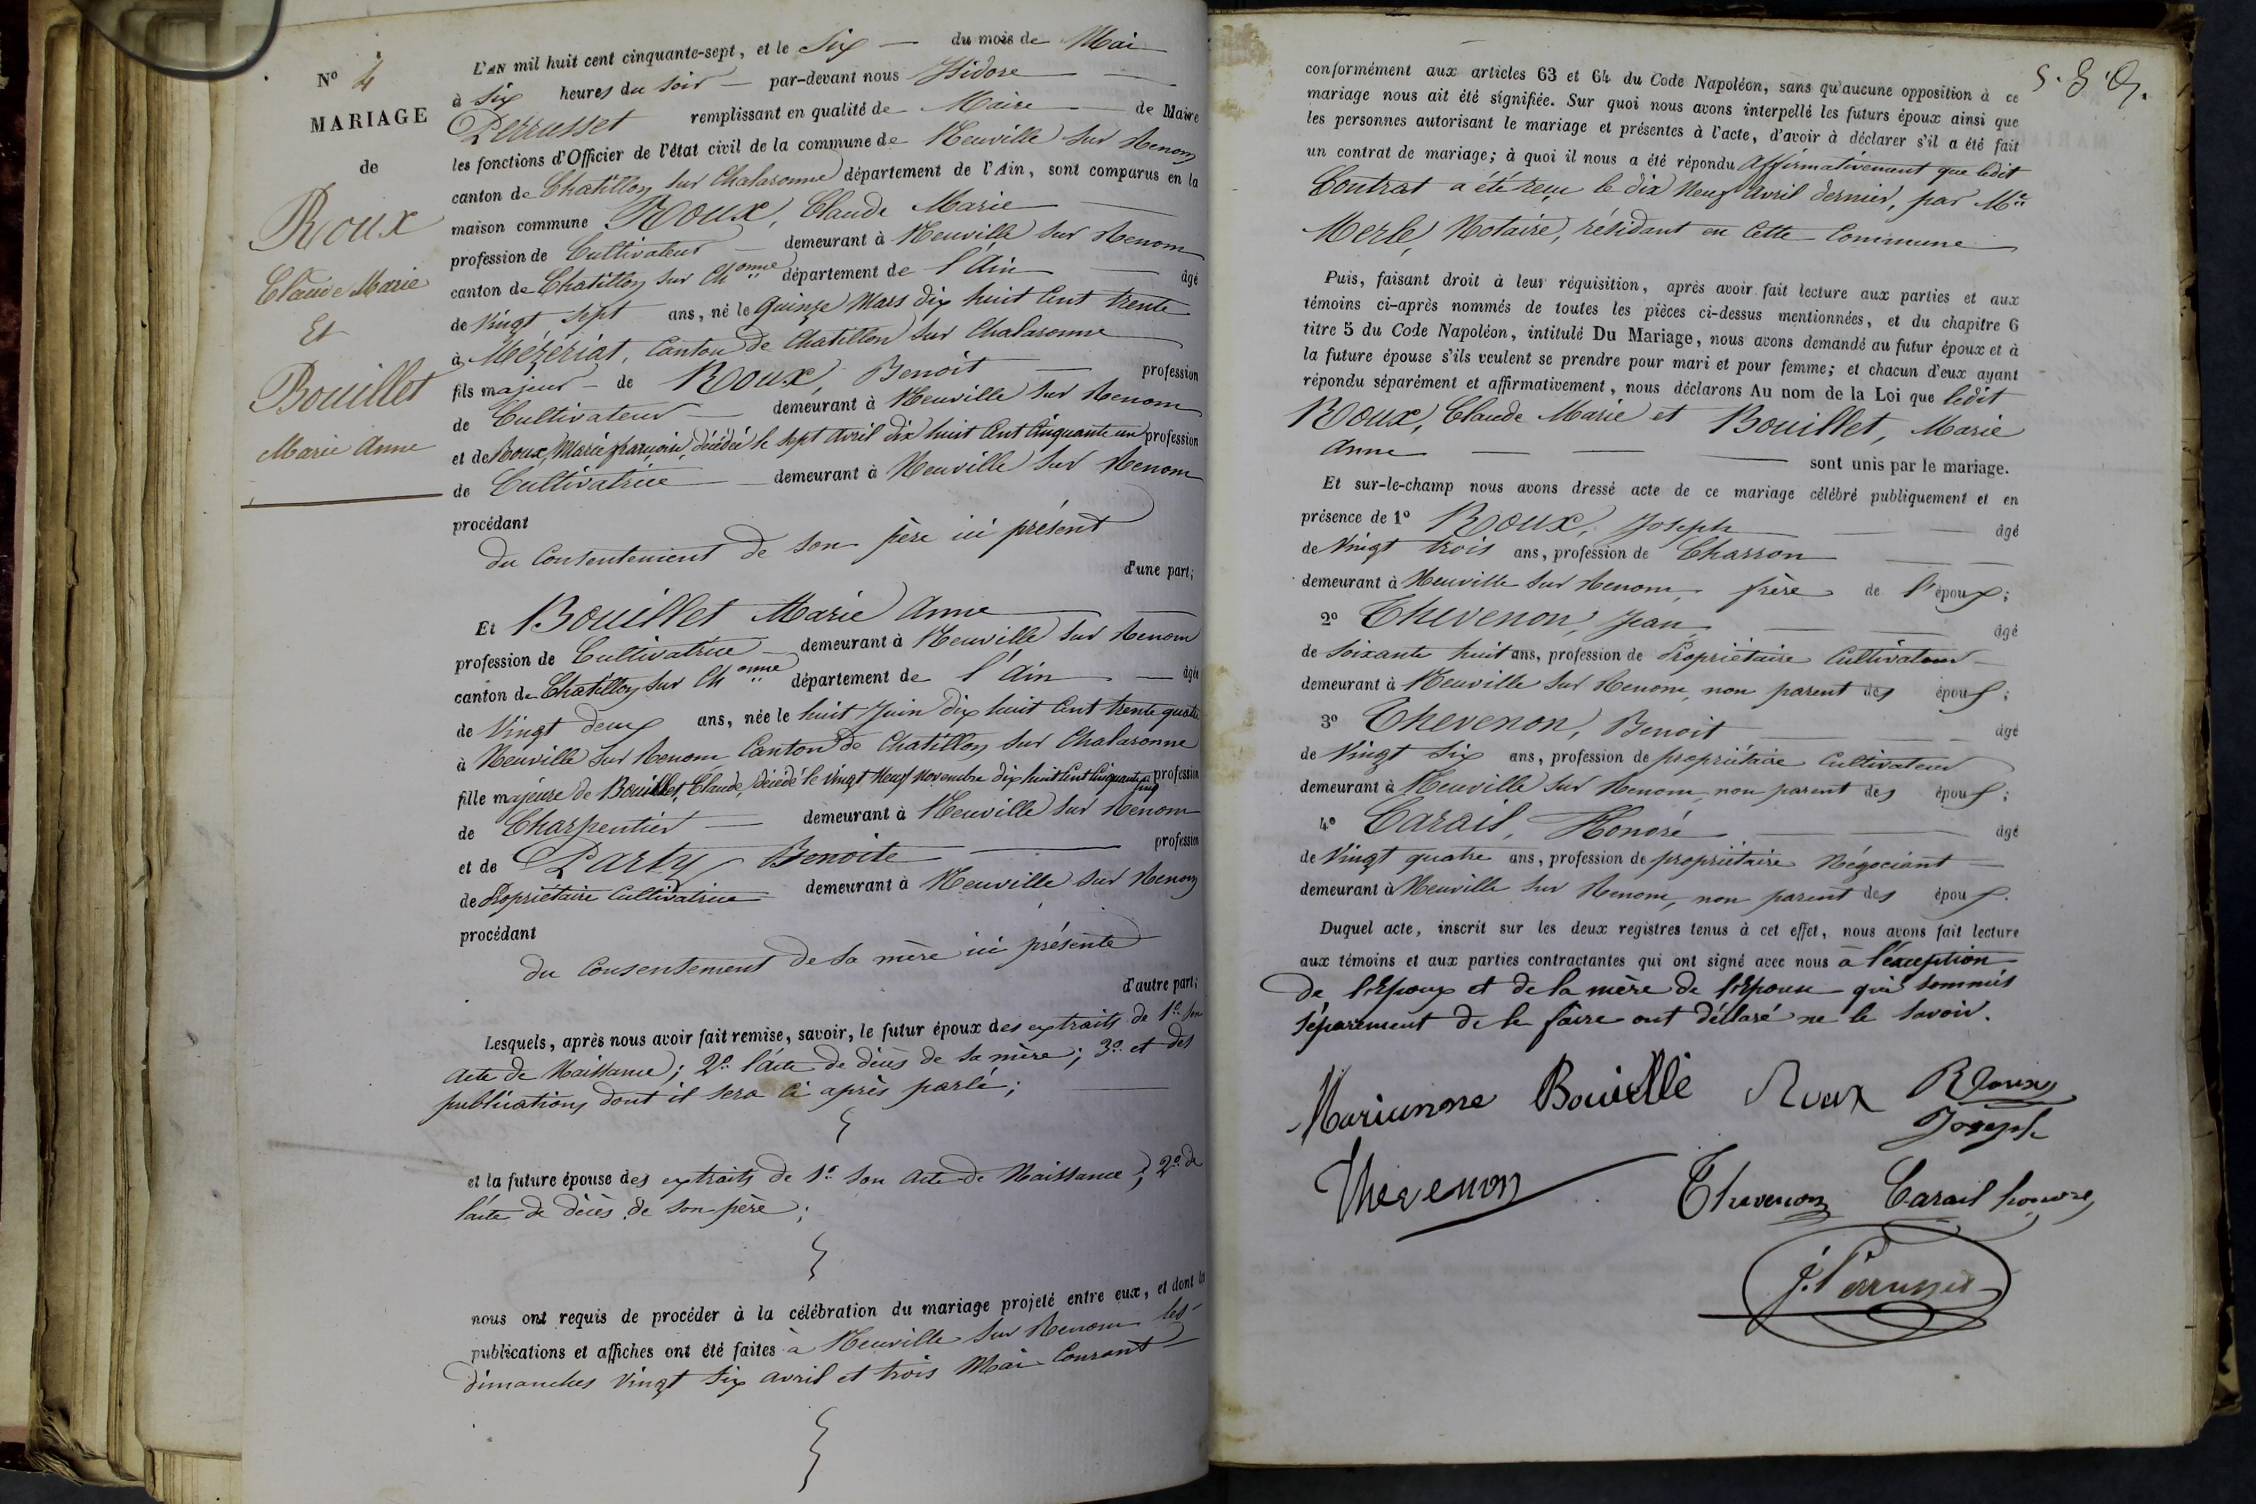 N° 4
MARIAGE
de
Roux
Claude Marie
Et
Bouillet
Marie Anne
L'AN mil huit cent cinquante-sept, et le Six du mois de Mai
à Six heures du soir par-devant nous Isidore
Perrusset remplissant en qualité de Maire de Maire
les fonctions d'Officier de l'état civil de la commune de Neuville sur Renom
canton de Chatillon sur Chalaronne département de l'Ain, sont comparus en la
maison commune Roux, Claude Marie
profession de Cultivateur demeurant à Neuville sur Renom
canton de Chatillon sur Chonne département de l'Ain âgé
de Vingt sept ans, né le quinze Mars dix huit Cent trente
à Mézériat, Canton de Chatillon sur Chalaronne
fils majeur de Roux, Benoit profession
de Cultivateur demeurant à Neuville sur Renom
et de Roux, Marie françoise, décédée le sept avril dix huit Cent Cinquante un profession
de Cultivatrice demeurant à Neuville sur Renom
procédant
du Consentement de son père ici présent
d'une part;
Et Bouillet Marie Anne
profession de Cultivatrice demeurant à Neuville sur Renom
canton de Chatillon sur Chonne département de l'Ain âgée
de Vingt deux ans, née le huit Juin dix huit Cent trente quatre
à Neuville sur Renom Canton de Chatillon sur Chalaronne
fille majeure de Bouillet, Claude, décédé le vingt Neuf Novembre dix huit Cent Cinquante cinq profession
de Charpentier demeurant à Neuville sur Renom
et de Party Benoite profession
de Propriétaire Cultivatrice demeurant à Neuville sur Renom
procédant
du Consentement de sa mère ici présente
d'autre part;
Lesquels, après nous avoir fait remise, savoir, le futur époux des extraits de 1° son
acte de Naissance; 2° l'acte de décès de sa mère; 3° et des
publications dont il sera ci après parlé;
et la future épouse des extraits de 1° son acte de Naissance; 2° de
l'acte de décès de son père;
nous ont requis de procéder à la célébration du mariage projeté entre eux, et dont les
publications et affiches ont été faites à Neuville sur Renom les
dimanches vingt six avril et trois Mai Courant
conformément aux articles 63 et 64 du Code Napoléon, sans qu'aucune opposition à ce
mariage nous ait été signifiée. Sur quoi nous avons interpellé les futurs époux ainsi que
les personnes autorisant le mariage et présentes à l'acte, d'avoir à déclarer s'il a été fait
un contrat de mariage; à quoi il nous a été répondu Affirmativement que ledit
Contrat a été reçu le dix Neuf avril dernier, par Me
Merle, Notaire, résidant en Cette Commune
Puis, faisant droit à leur réquisition, après avoir fait lecture aux parties et aux
témoins ci-après nommés de toutes les pièces ci-dessus mentionnées, et du chapitre 6
titre 5 du Code Napoléon, intitulé Du Mariage, nous avons demandé au futur époux et à
la future épouse s'ils veulent se prendre pour mari et pour femme; et chacun d'eux ayant
répondu séparément et affirmativement, nous déclarons Au nom de la Loi que ledit
Roux, Claude Marie et Bouillet, Marie
Anne sont unis par le mariage.
Et sur-le-champ nous avons dressé acte de ce mariage célébré publiquement et en
présence de 1° Roux, Joseph âgé
de Vingt trois ans, profession de Charron
demeurant à Neuville sur Renom, frère de l'époux;
2° Thevenon, Jean âgé
de soixante huit ans, profession de Propriétaire Cultivateur
demeurant à Neuville sur Renom, non parent des époux;
3° Thevenon, Benoit âgé
de Vingt Six ans, profession de propriétaire Cultivateur
demeurant à Neuville sur Renom, non parent des époux;
4° Carail, Honoré âgé
de Vingt quatre ans, profession de propriétaire Négociant
demeurant à Neuville sur Renom, non parent des époux.
Duquel acte, inscrit sur les deux registres tenus à cet effet, nous avons fait lecture
aux témoins et aux parties contractantes qui ont signé avec nous à l'éxception
de l'Epoux et de la mère de l'Epouse qui sommés
séparement de le faire ont déclaré ne le savoir.
Mariunne Bouillé Roux Roux
Joseph
Thevenon Thevenon Carail honoré
J. Perrusset